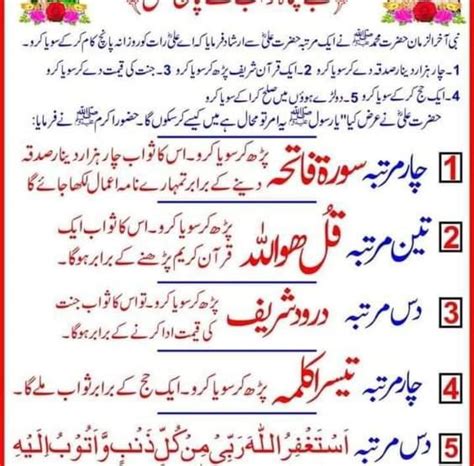 نبی آخرالزمان حضرت محمدﷺ نے ایک مرتبہ حضرت علیؓ سے ارشاد فرمایا کہ اے علیؓ رات کو روزانہ پانچ کام کر کے سویا کرو
1۔ چار ہزار دینار صدقہ دے کر سویا کرو 2۔ ایک قرآن شریف پڑھ کر سویا کرو 3۔ جنت کی قیمت دے کر سویا کرو
4۔ ایک حج کر کے سویا کرو 5۔ دو لڑے ہوؤں میں صلح کرا کے سویا کرو
حضرت علیؓ نے عرض کیا "یا رسول اللہﷺ یہ امر تو محال ہے میں کیسے کر سکوں گا۔ حضور اکرمﷺ نے فرمایا:
1 چار مرتبہ سورۃ فاتحہ پڑھ کر سویا کرو۔ اس کا ثواب چار ہزار دینار صدقہ
دینے کے برابر تمہارے نامہ اعمال لکھا جائے گا
2 تین مرتبہ قُل ھواللہ پڑھ کر سویا کرو۔ اس کا ثواب ایک
قرآن کریم پڑھنے کے برابر ہوگا۔
3 دس مرتبہ درود شریف پڑھ کر سویا کرو۔ تو اس کا ثواب جنت
کی قیمت ادا کرنے کے برابر ہوگا۔
4 چار مرتبہ تیسرا کلمہ پڑھ کر سویا کرو۔ ایک حج کے برابر ثواب ملے گا۔
5 دس مرتبہ اَسْتَغْفِرُ اللهَ رَبِّیْ مِنْ کُلِّ ذَنْبٍ وَّاَتُوْبُ اِلَیْهِ